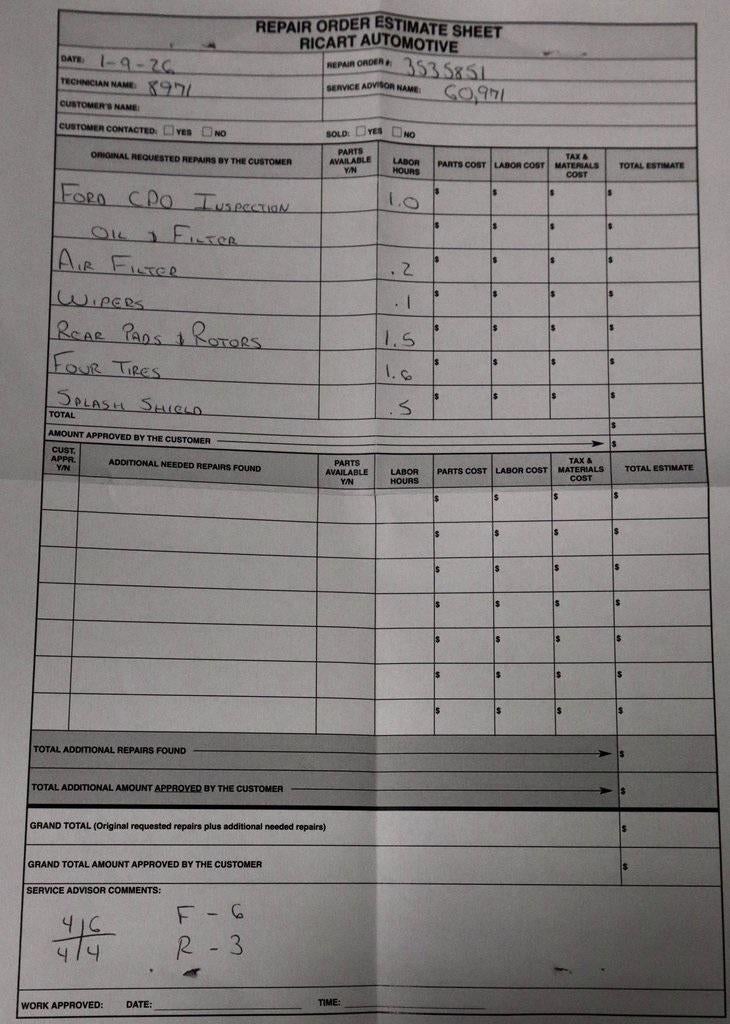 REPAIR ORDER ESTIMATE SHEET
RICART AUTOMOTIVE
DATE: 1-9-26 REPAIR ORDER #: 3535851
TECHNICIAN NAME: 8971 SERVICE ADVISOR NAME: 60,971
CUSTOMER'S NAME:
CUSTOMER CONTACTED: ☐ YES ☐ NO SOLD: ☐ YES ☐ NO
ORIGINAL REQUESTED REPAIRS BY THE CUSTOMER PARTS AVAILABLE Y/N LABOR HOURS PARTS COST LABOR COST TAX & MATERIALS COST TOTAL ESTIMATE
FORD CPO INSPECTION 1.0 $ $ $ $
OIL & FILTER $ $ $ $
AIR FILTER .2 $ $ $ $
WIPERS .1 $ $ $ $
REAR PADS & ROTORS 1.5 $ $ $ $
FOUR TIRES 1.6 $ $ $ $
SPLASH SHIELD .5 $ $ $ $
TOTAL $
AMOUNT APPROVED BY THE CUSTOMER $
CUST. APPR. Y/N ADDITIONAL NEEDED REPAIRS FOUND PARTS AVAILABLE Y/N LABOR HOURS PARTS COST LABOR COST TAX & MATERIALS COST TOTAL ESTIMATE
$ $ $ $
$ $ $ $
$ $ $ $
$ $ $ $
$ $ $ $
$ $ $ $
$ $ $ $
TOTAL ADDITIONAL REPAIRS FOUND $
TOTAL ADDITIONAL AMOUNT APPROVED BY THE CUSTOMER $
GRAND TOTAL (Original requested repairs plus additional needed repairs) $
GRAND TOTAL AMOUNT APPROVED BY THE CUSTOMER $
SERVICE ADVISOR COMMENTS:
4 6 F - 6
4 4 R - 3
WORK APPROVED: DATE: TIME: